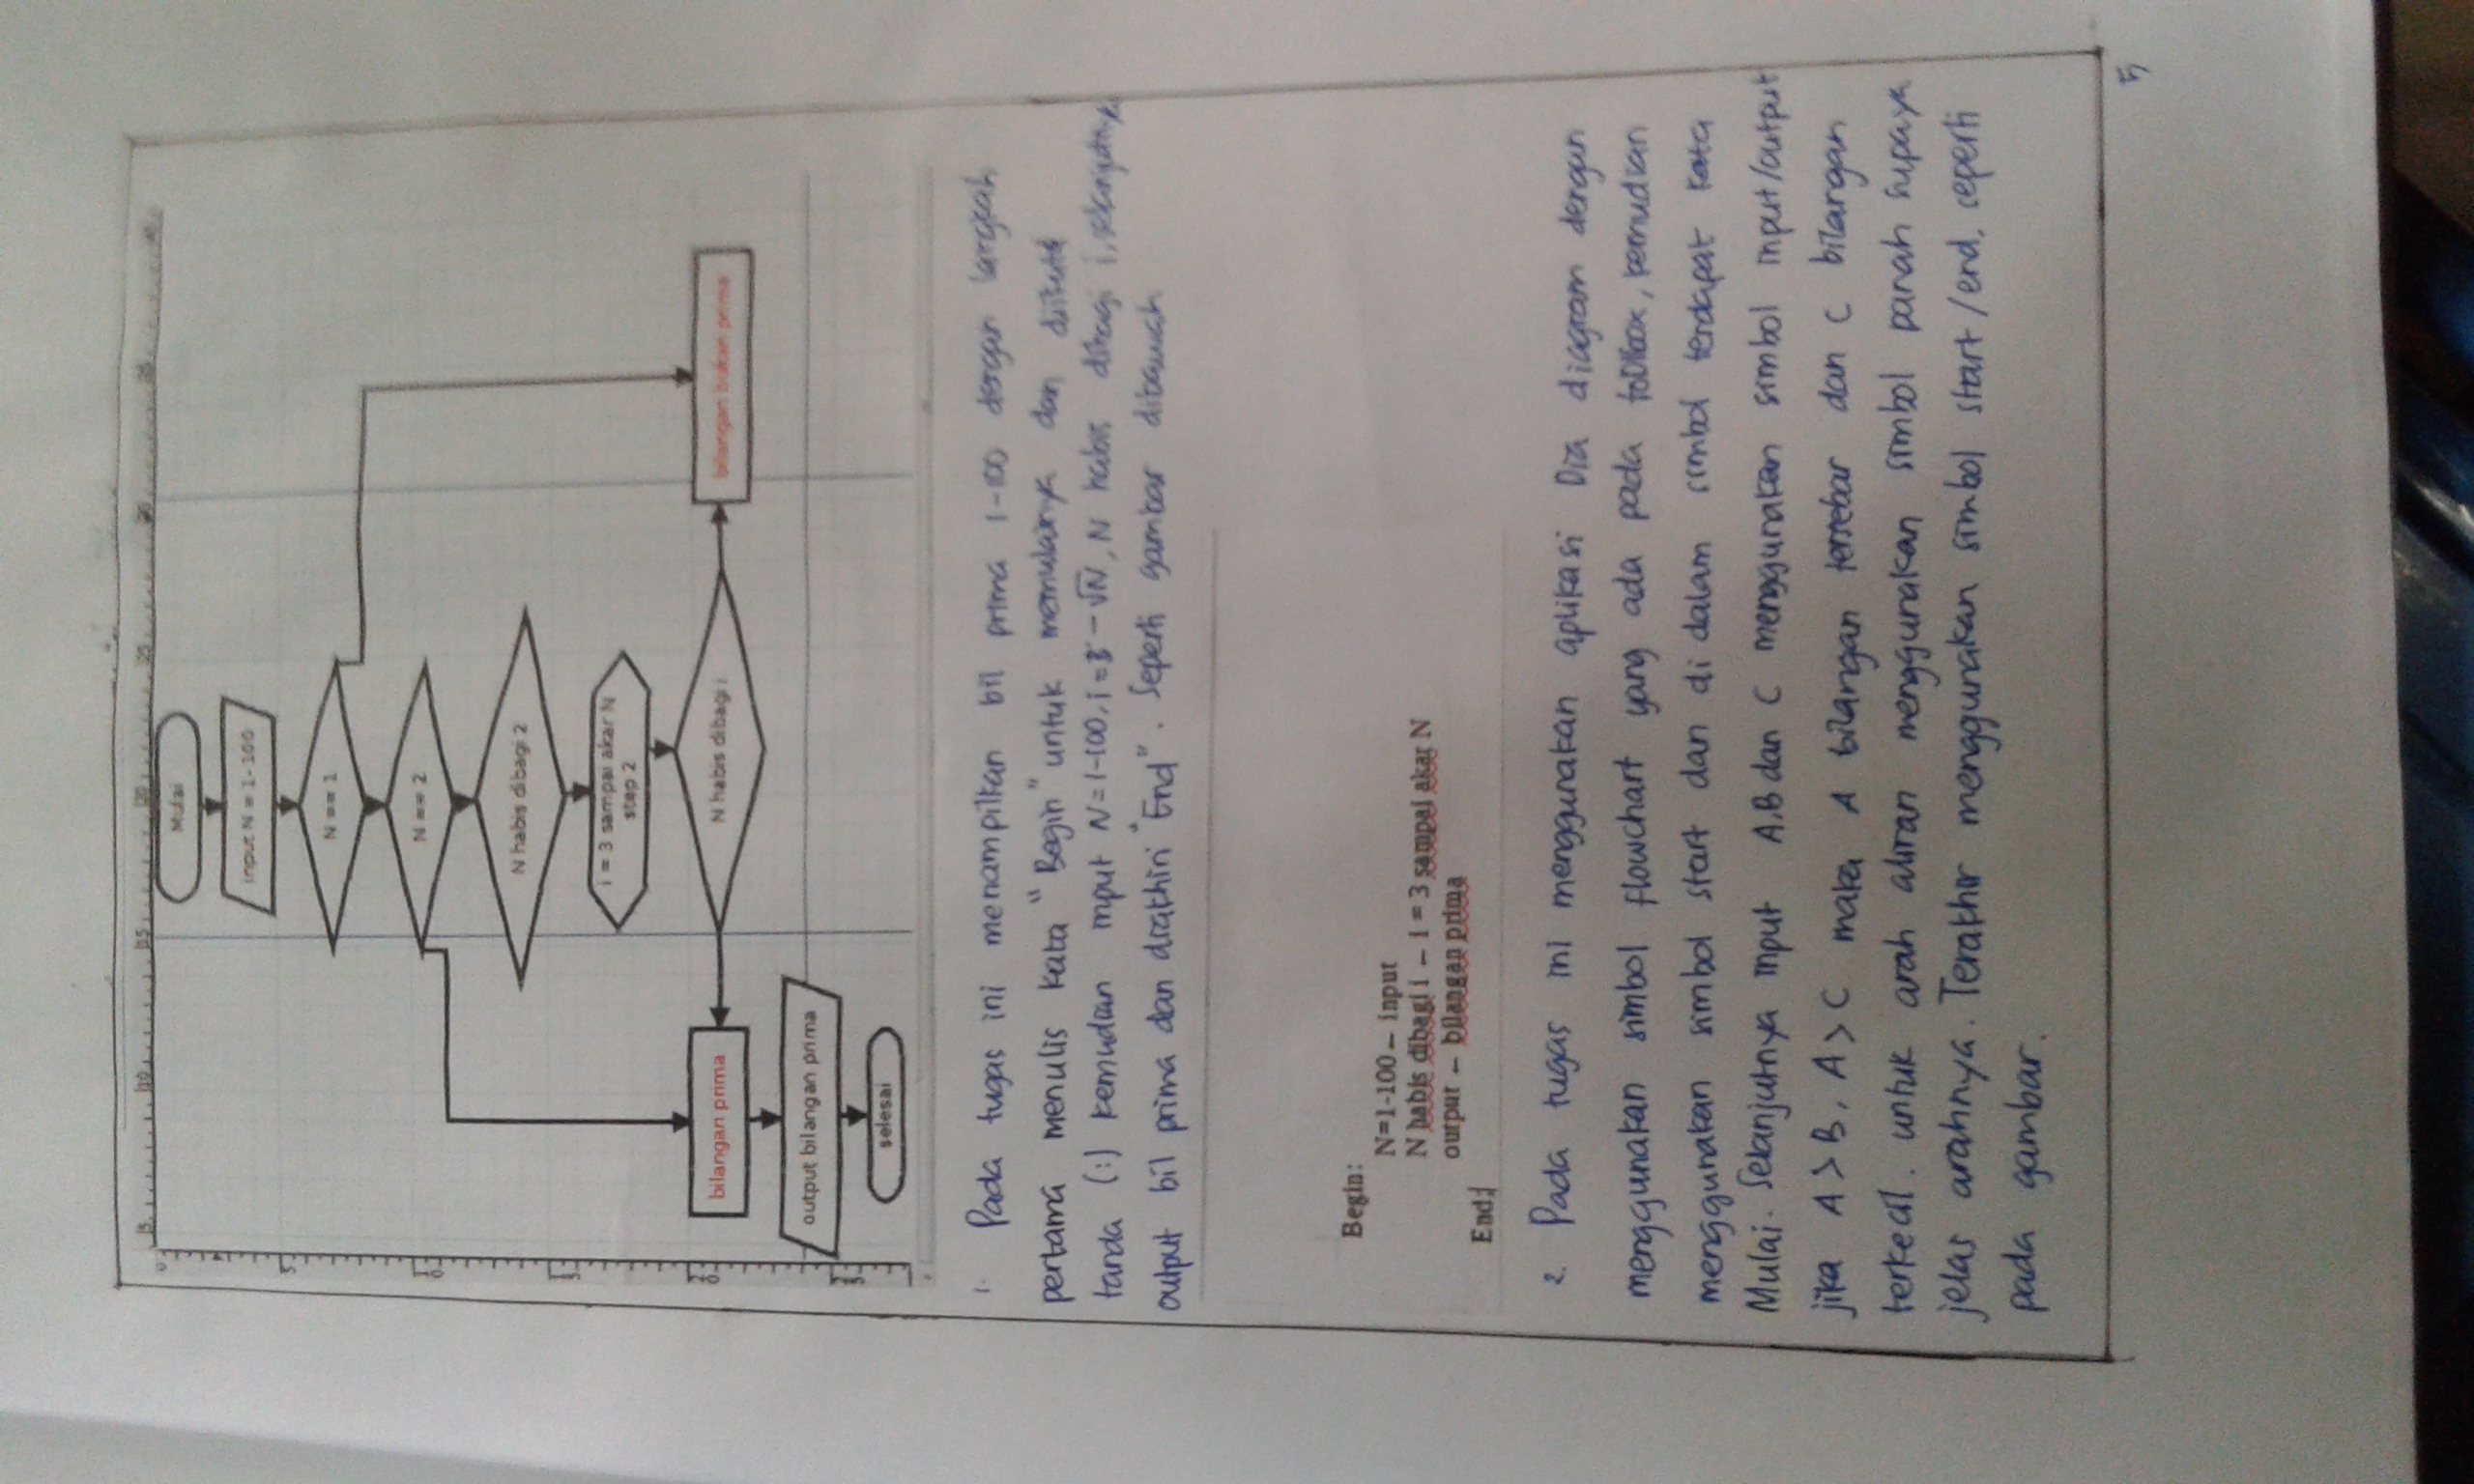 5 10 15 20 25 30 35 40
Mulai
input N = 1-100
N == 1
N == 2
N habis dibagi 2
i = 3 sampai akar N
step 2
bilangan prima
N habis dibagi i
bilangan bukan prima
output bilangan prima
selesai
1. Pada tugas ini menampilkan bil prima 1-100 dengan langkah
pertama menulis kata "Begin" untuk memulainya dan diikuti
tanda (:) kemudian input N=1-100, i=3-√N, N habis dibagi i, selanjutnya
output bil prima dan diakhiri "End". Seperti gambar dibawah
Begin:
N=1-100 – input
N habis dibagi i – i = 3 sampai akar N
output – bilangan prima
End;
2. Pada tugas ini menggunakan aplikasi Dia diagram dengan
menggunakan simbol flowchart yang ada pada toolbox, kemudian
menggunakan simbol start dan di dalam simbol terdapat kata
Mulai. Selanjutnya input A,B dan C menggunakan simbol input/output
jika A>B, A>C maka A bilangan tersebar dan C bilangan
terkecil. untuk arah aliran menggunakan simbol panah supaya
jelas arahnya. Terakhir menggunakan simbol start/end, seperti
pada gambar.
5